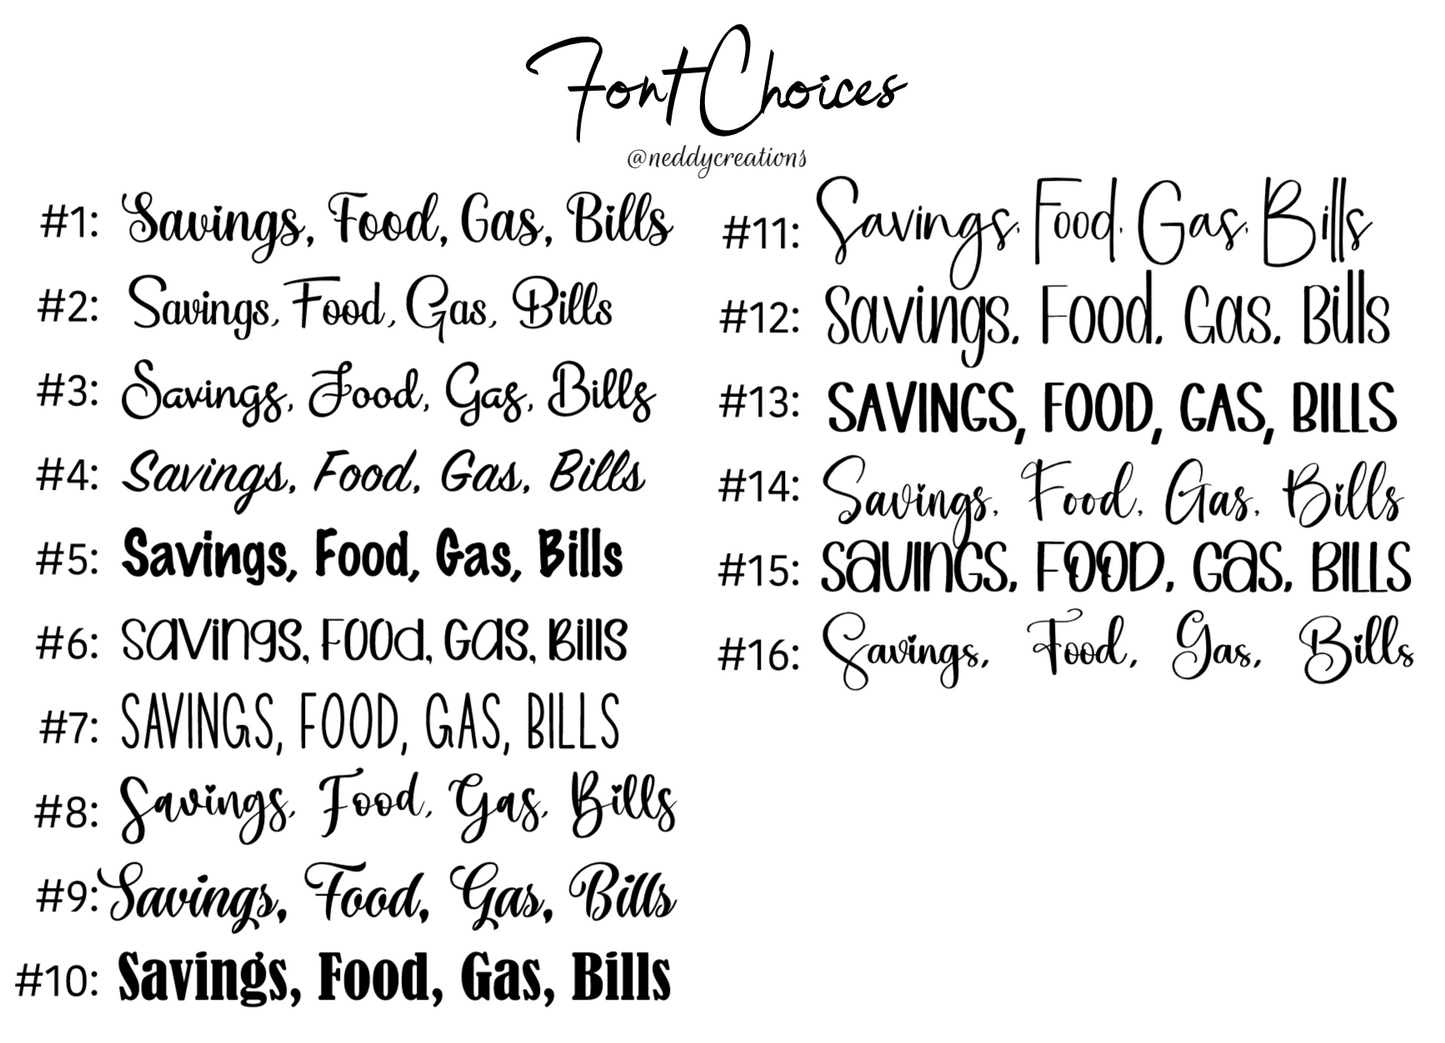 Font Choices
@neddycreations
#1: Savings, Food, Gas, Bills
#2: Savings, Food, Gas, Bills
#3: Savings, Food, Gas, Bills
#4: Savings, Food, Gas, Bills
#5: Savings, Food, Gas, Bills
#6: Savings, Food, Gas, Bills
#7: SAVINGS, FOOD, GAS, BILLS
#8: Savings, Food, Gas, Bills
#9: Savings, Food, Gas, Bills
#10: Savings, Food, Gas, Bills
#11: Savings, Food, Gas, Bills
#12: Savings, Food, Gas, Bills
#13: SAVINGS, FOOD, GAS, BILLS
#14: Savings, Food, Gas, Bills
#15: SaVINGS, FOOD, Gas, BILLS
#16: Savings, Food, Gas, Bills